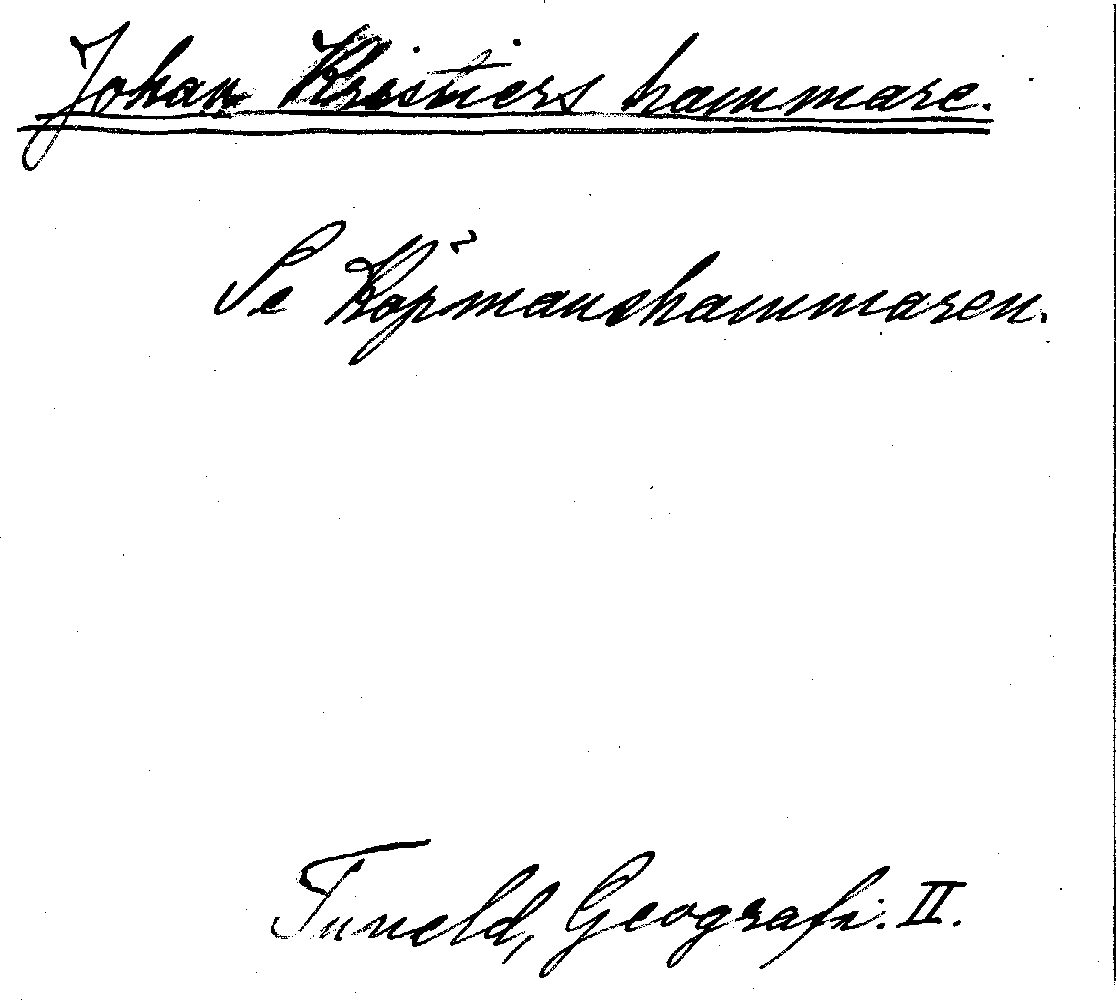 Johan Kristiers hammare.
Se Köpmanshammaren.
Tuneld, Geografi. II.